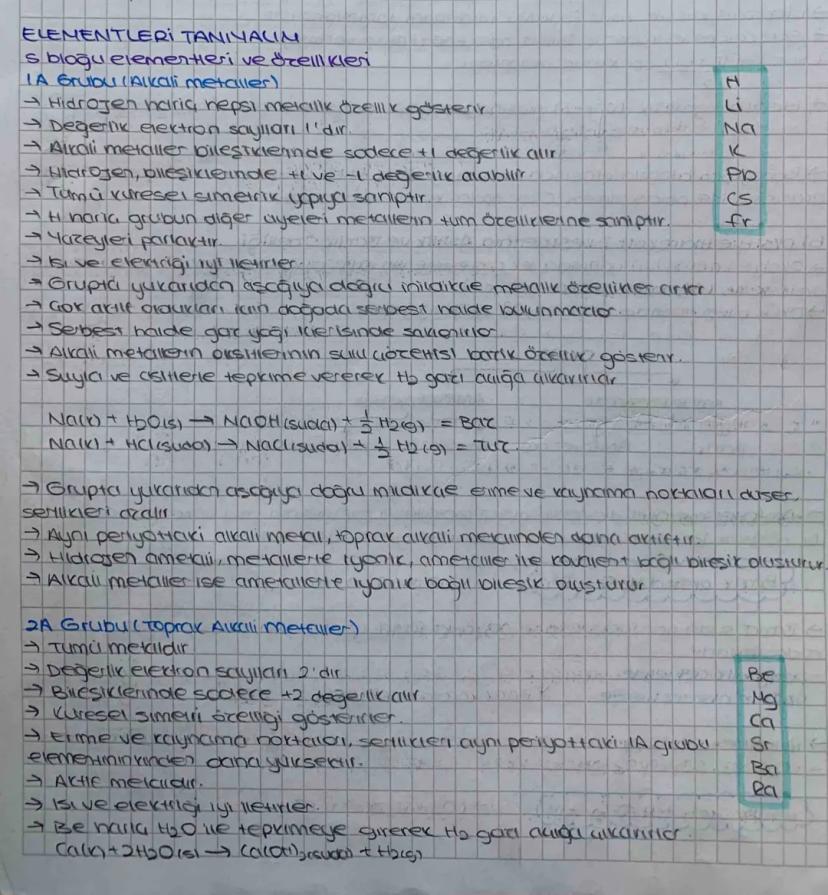 ELEMENTLERİ TANIYALIM
S bloğu elementleri ve özellikleri
1A Grubu (Alkali metaller)
→ Hidrojen hariç hepsi metalik özellik gösterir
→ Değerlik elektron sayıları 1'dir.
→ Alkali metaller bileşiklerinde sadece +1 değerlik alır
→ Hidrojen, bileşiklerinde +1 ve -1 değerlik alabilir
→ Tümü küresel simetrik yapıya sahiptir.
→ H hariç grubun diğer üyeleri metallerin tüm özelliklerine sahiptir.
→ Yüzeyleri parlaktır.
→ Isı ve elektriği iyi iletirler.
→ Grupta yukarıdan aşağıya doğru inildikçe metalik özellikler artar
→ Çok aktif oldukları için doğada serbest halde bulunmazlar.
→ Serbest halde gaz yağı içerisinde saklanırlar
→ Alkali metallerin oksitlerinin sulu çözeltisi bazik özellik gösterir.
→ Suyla ve asitlerle tepkime vererek H2 gazı açığa çıkarırlar
H
Li
Na
K
Rb
Cs
fr
Na(k) + H2O(s) → NaOH(suda) + 1/2 H2(g) = Baz
Na(k) + HCl(suda) → NaCl(suda) + 1/2 H2(g) = Tuz
→ Grupta yukarıdan aşağıya doğru inildikçe erime ve kaynama noktaları düşer,
sertlikleri azalır
→ Aynı periyottaki alkali metal, toprak alkali metalinden daha aktiftir.
→ Hidrojen ametali, metallerle iyonik, ametaller ile kovalent bağlı bileşik oluşturur
→ Alkali metaller ise ametallerle iyonik bağlı bileşik oluşturur
2A Grubu (Toprak Alkali Metaller)
→ Tümü metaldir
→ Değerlik elektron sayıları 2'dir
→ Bileşiklerinde sadece +2 değerlik alır
→ Küresel simetri özelliği gösterirler.
→ Erime ve kaynama noktaları, sertlikleri aynı periyottaki 1A grubu
elementininkinden daha yüksektir.
→ Aktif metaldir.
→ Isı ve elektriği iyi iletirler.
→ Be hariç H2O ile tepkimeye girerek H2 gazı açığa çıkarırlar
Ca(k) + 2H2O(s) → Ca(OH)2(suda) + H2(g)
Be
Mg
Ca
Sr
Ba
Ra